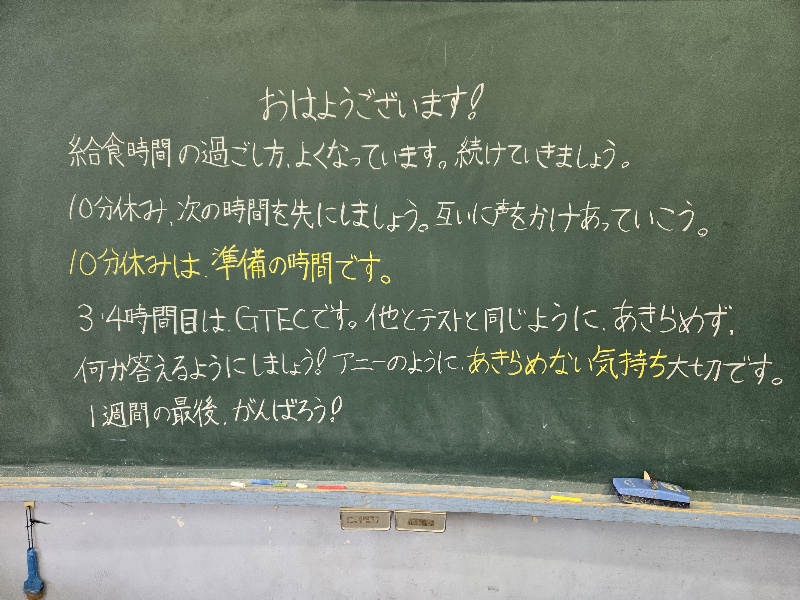 おはようございます!
給食時間の過ごし方、よくなっています。続けていきましょう。
10分休み、次の時間を先にしましょう。互いに声をかけあっていこう。
10分休みは、準備の時間です。
3・4時間目は、GTECです。他とテストと同じように、あきらめず、
何か答えるようにしましょう!アニーのように、あきらめない気持ち大切です。
1週間の最後、がんばろう!